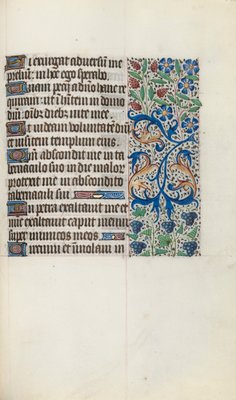 Si exurgat adversum me
prelium: in hoc ego sperabo.
Unam pecij a dno hanc re
quiram: ut inhitem in domo
dni: oibz diebz vite mee.
Ut videam voluntatē dni
et visitem templum eius.
Qm abscondit me in ta
bernaculo suo in die malor
protexit me in abscondito
tabernaculi sui
In petra exaltavit me et
nūc exaltavit caput meum
super inimicos meos.
Circuivi et immolavi in